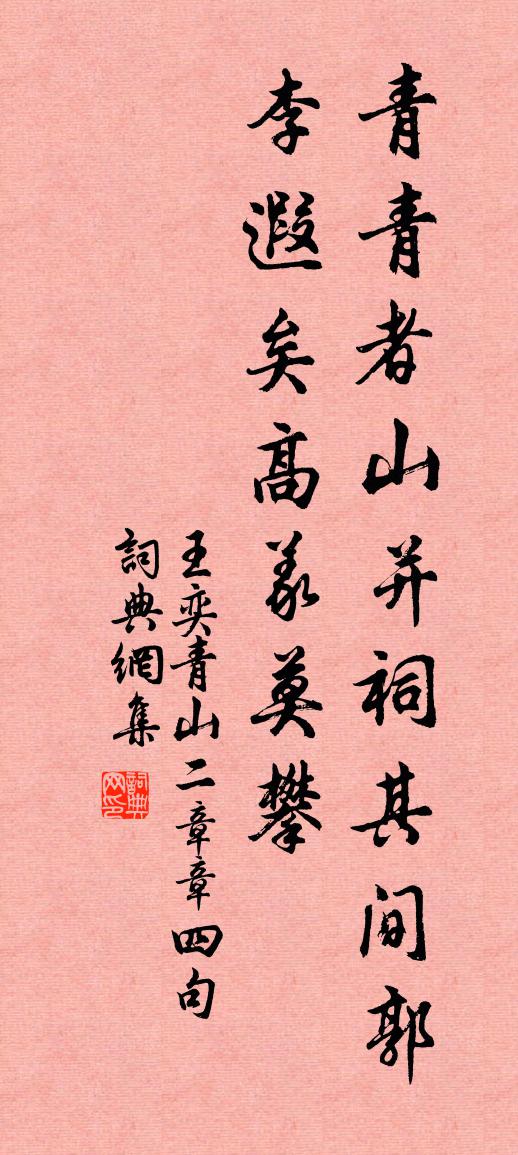 青青者山并祠其间郭
李遐矣高義莫攀
王奕青山二章章四句
詞典網集
詞典网印